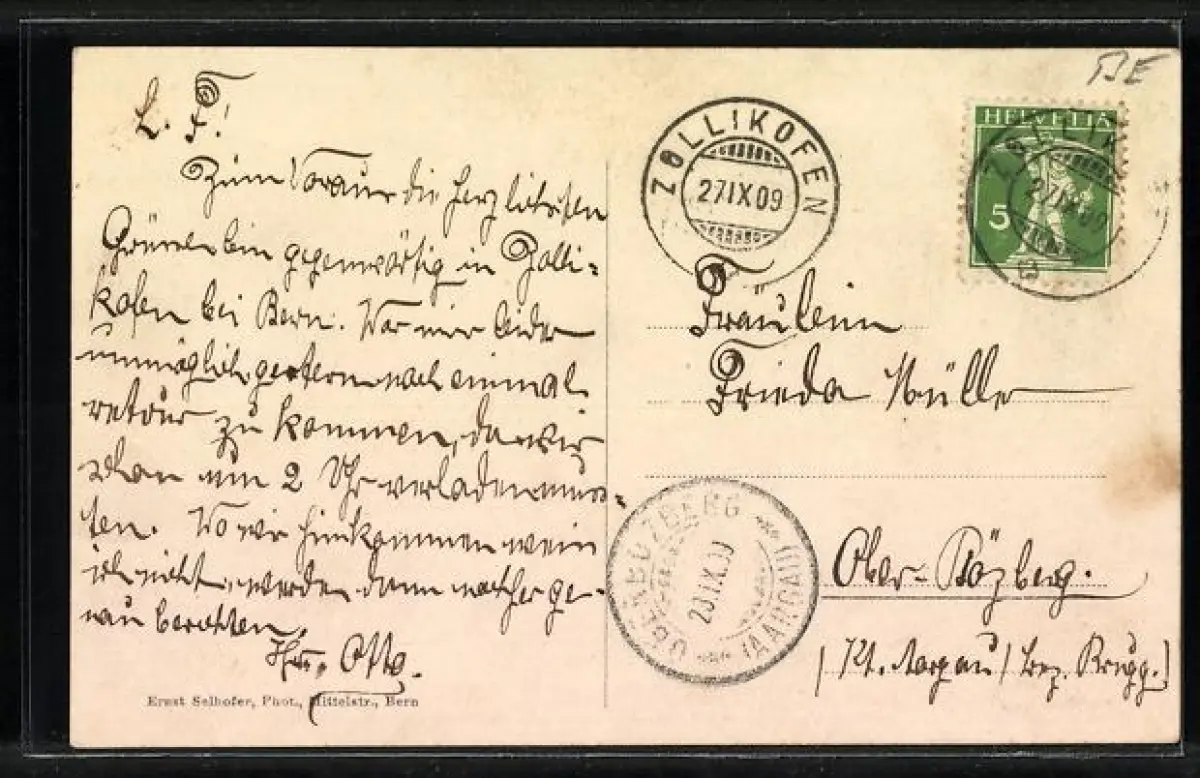 L. F!
Zum Voraus die herzlichsten
Grüsse bin gegenwärtig in Zolli-
kofen bei Bern. War mir leider
unmöglich gestern noch einmal
retour zu kommen, da wir
schon um 2 Uhr verladen muss-
ten. Wo wir hinkommen weiss
ich nicht, werden dann nachher ge-
nau berichten.
Otto.
Ernst Selhofer, Phot., Mittelstr., Bern
BE
ZOLLIKOFEN
27 IX 09
HELVETIA
5
ZOLLIK
27 IX 09
Fräulein
Frieda Müller
OBERBÖZBERG
(AARGAU)
IX.09
Ober-Bözberg.
(Kt. Aargau) Bez. Brugg.)